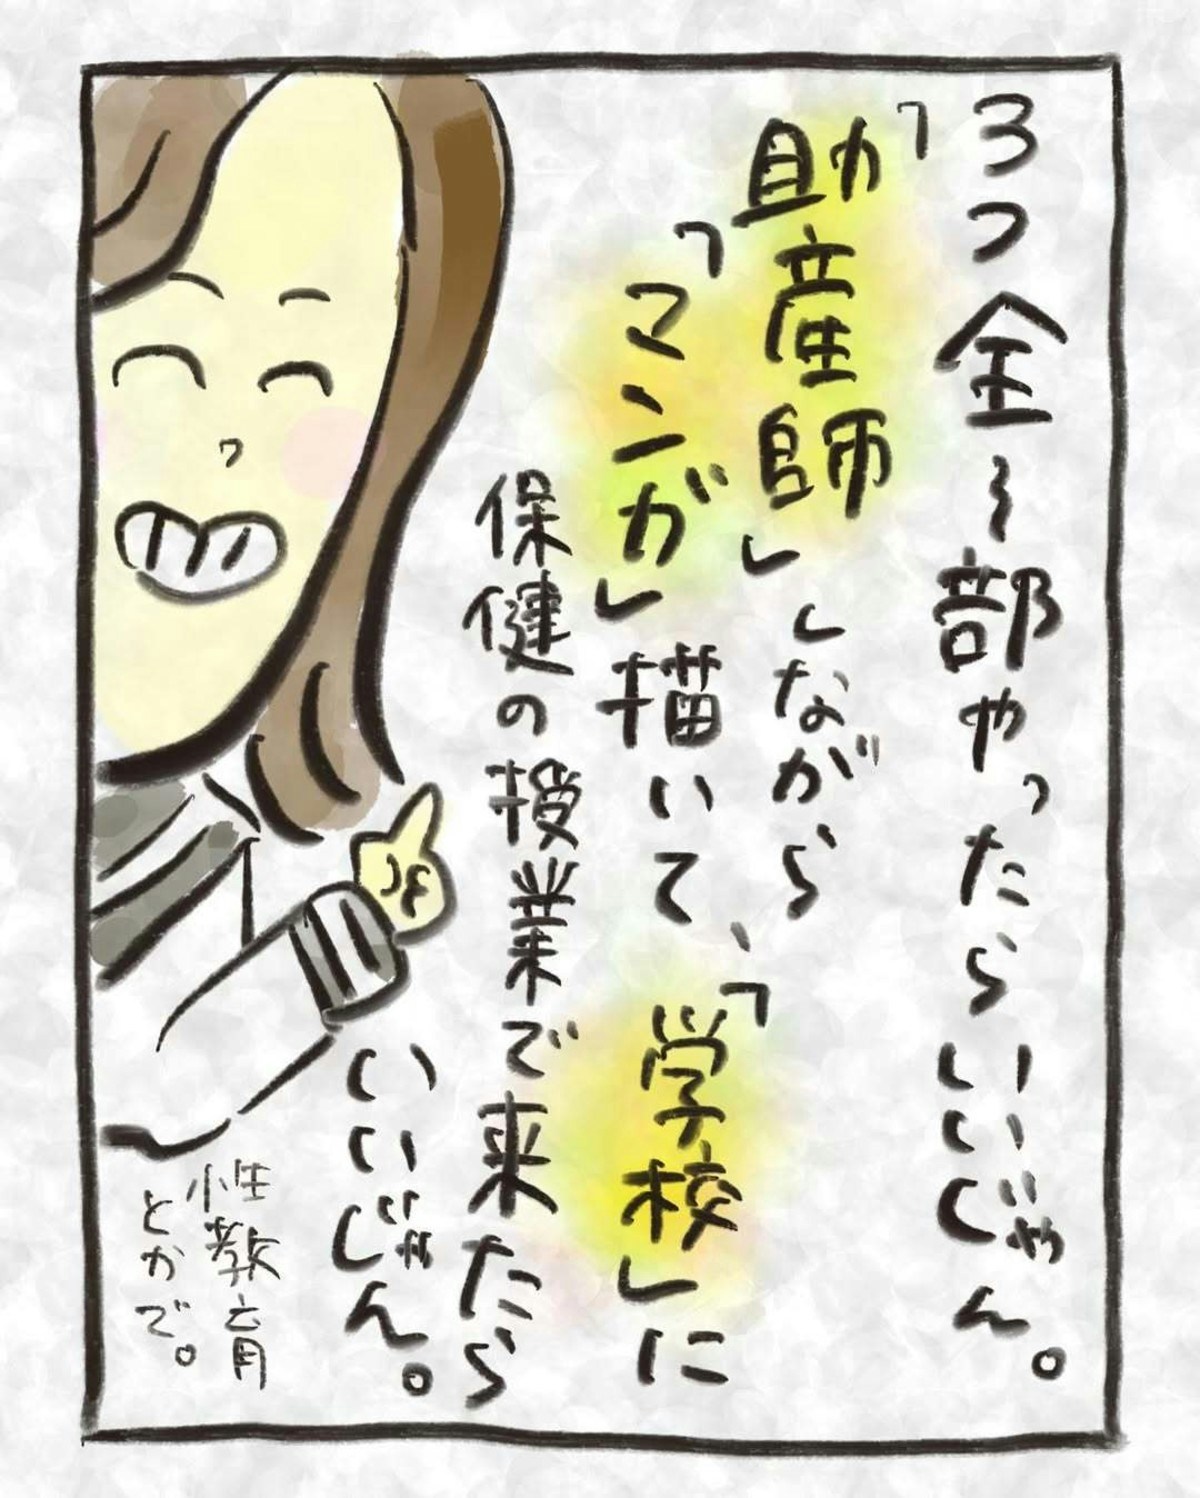 3つ全～部やったらいいじゃん。
「助産師」しながら
「マンガ」描いて、「学校」に
保健の授業で来たら
いいじゃん。
性教育
とかで。